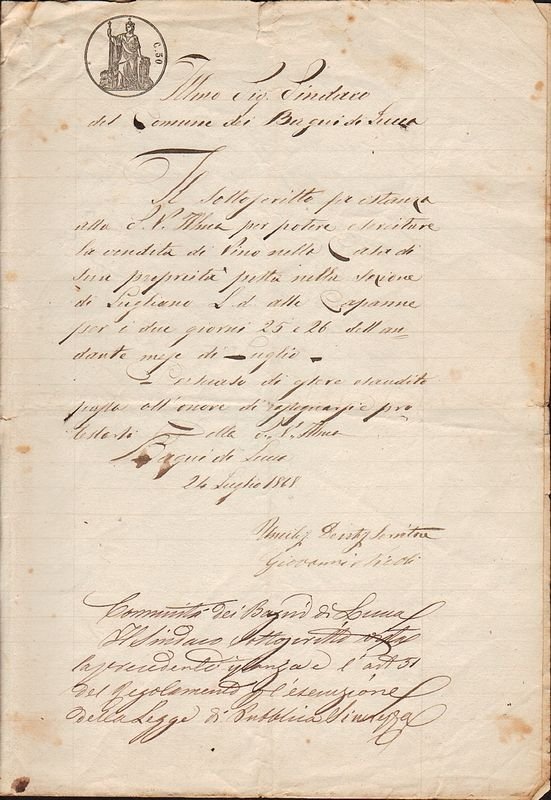 C. 50
Illmo Sig. Sindaco
del Comune dei Bagni di Lucca
Il sottoscritto fa istanza
alla S. V. Illma per potere esercitare
la vendita di Vino nella Casa di
sua proprietà posta nella sezione
di Lugliano L. d. alle Capanne
per i due giorni 25 e 26 dell'an
dante mese di Luglio
Persuaso di essere esaudito
passa all'onore di segnarsi e pro
testarsi Della S. V. Illma
Bagni di Lucca
24 Luglio 1868
Umilis Devots Servitore
Giovanni
Comunità dei Bagni di Lucca
Il Sindaco sottoscritto vista
la precedente istanza e l'art 51
del Regolamento p l'esecuzione
della Legge di Pubblica Sicurezza